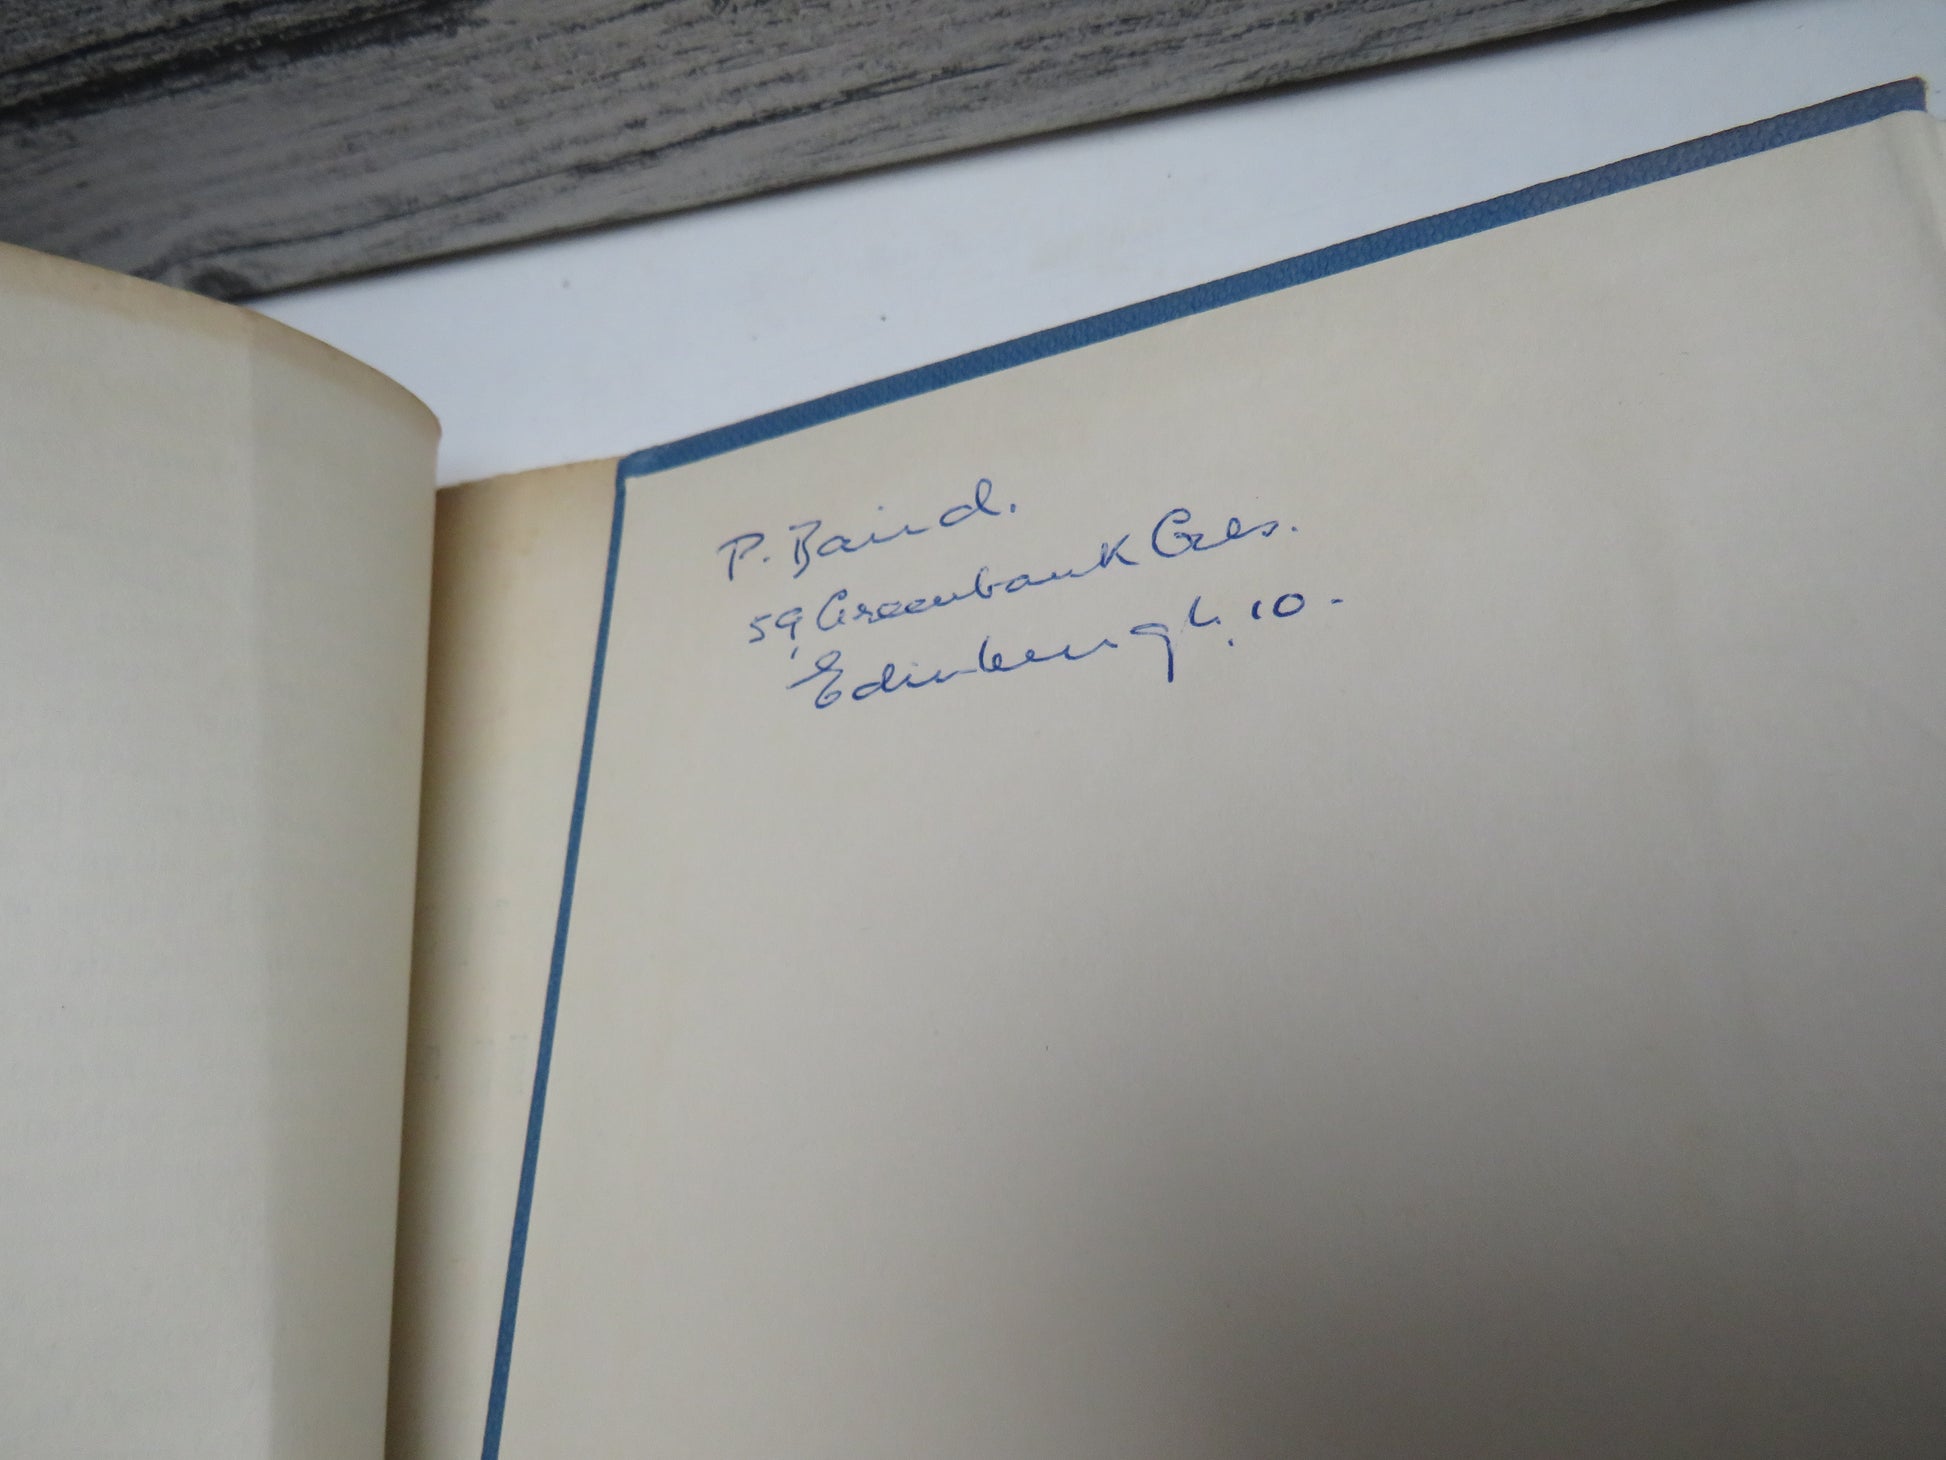 P. Baird.
59, Greenbank Cres.
Edinburgh, 10.